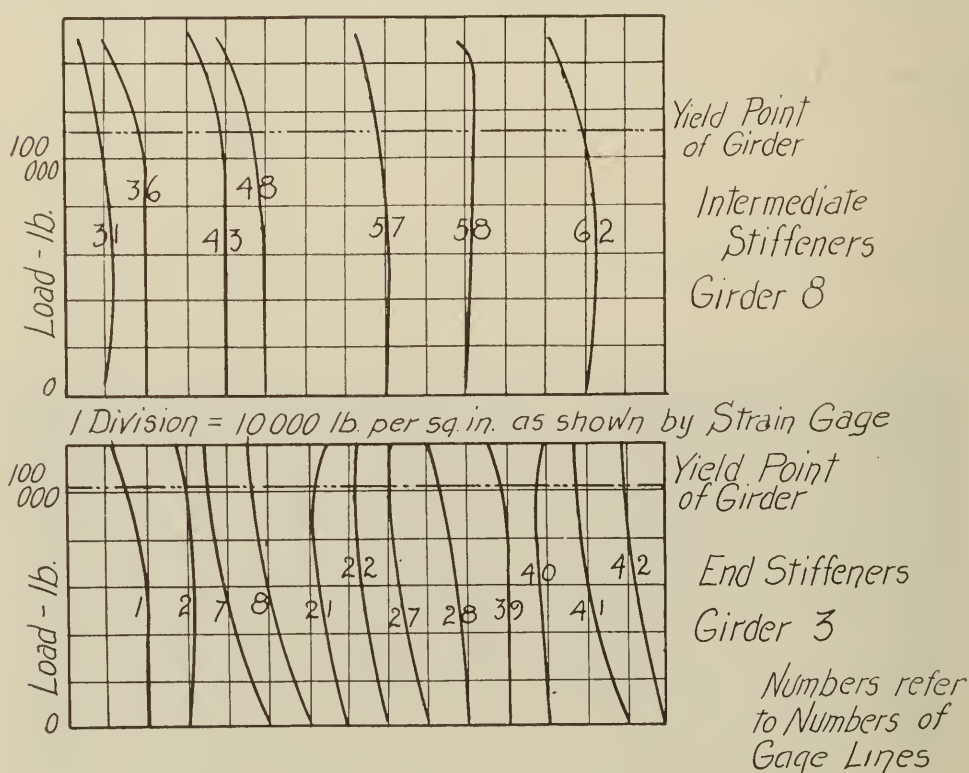 Load - lb.
100
000
0
31
36
43
48
57
58
62
Yield Point
of Girder
Intermediate
Stiffeners
Girder 8
1 Division = 10000 lb. per sq. in. as shown by Strain Gage
Load - lb.
100
000
0
1
2
7
8
21
22
27
28
39
40
41
42
Yield Point
of Girder
End Stiffeners
Girder 3
Numbers refer
to Numbers of
Gage Lines